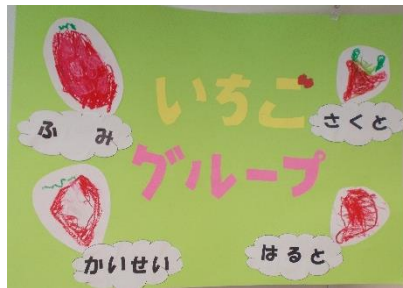 いちご
グループ
ふみ
さくと
かいせい
はると